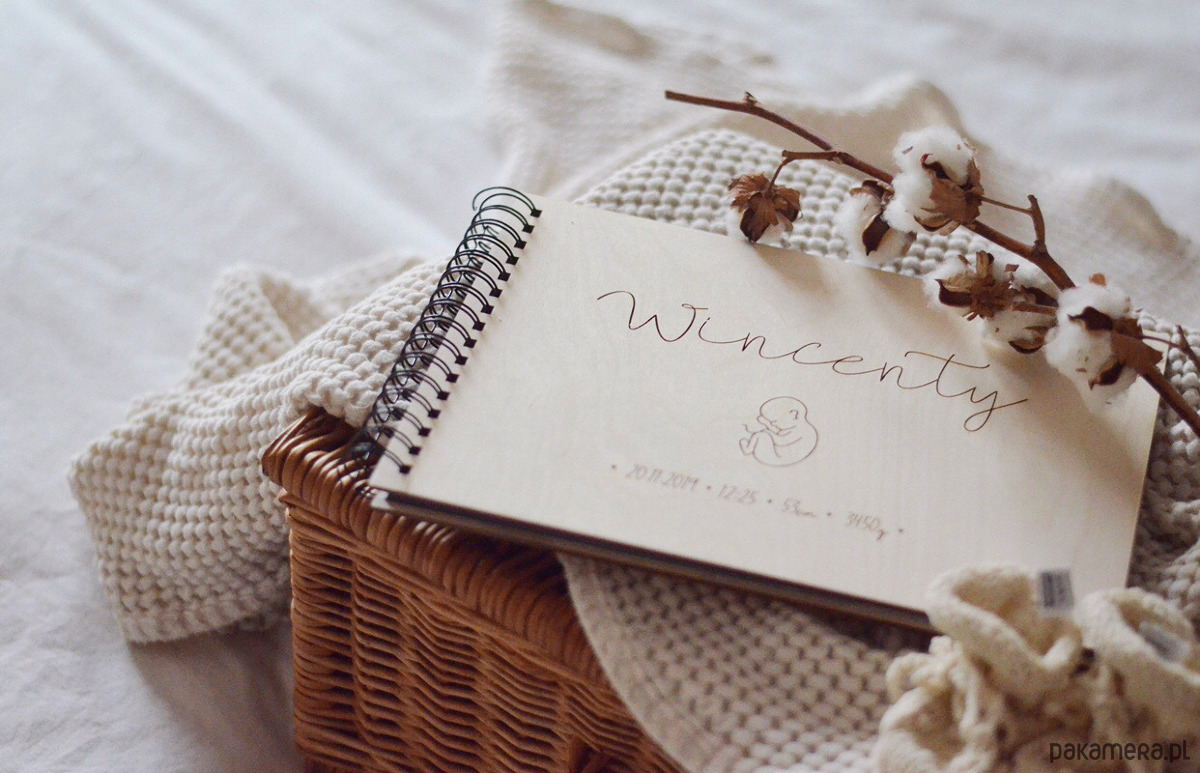 Wincenty
• 20.11.2019 • 12:25 • 53cm • 3450g •
pakamera.pl